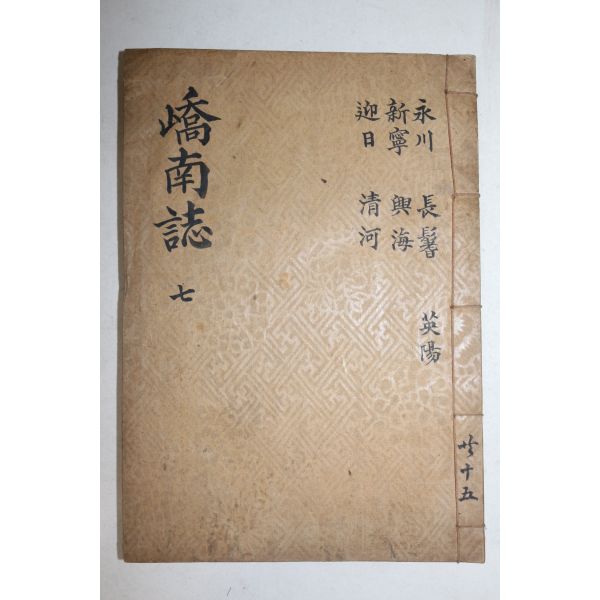 永川 長鬐 英陽
新寧 興海
迎日 清河
嶠南誌 七
共十五